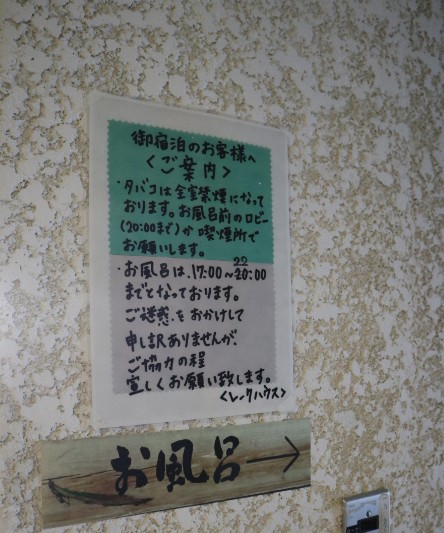 御宿泊のお客様へ
<ご案内>
・タバコは全室禁煙になって
おります。お風呂前のロビー
(20:00まで)か喫煙所で
お願いします。
・お風呂は、17:00～20:00
22
までとなっております。
ご迷惑をおかけして
申し訳ありませんが、
ご協力の程
宜しくお願い致します。
<レークハウス>
お風呂→